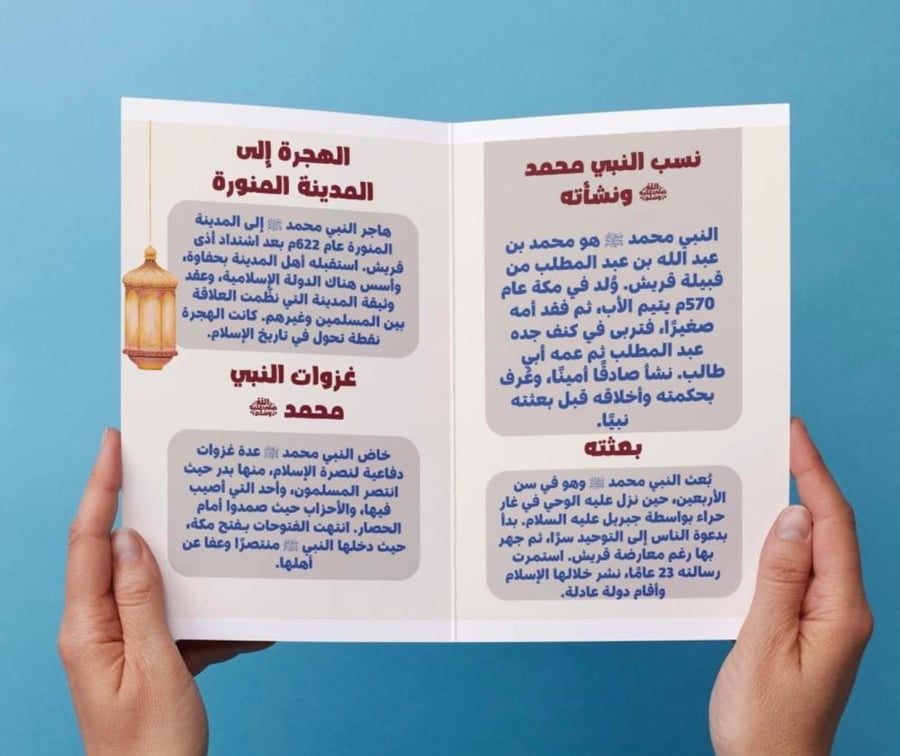 نسب النبي محمد
ﷺ ونشأته
النبي محمد ﷺ هو محمد بن
عبد الله بن عبد المطلب من
قبيلة قريش. وُلد في مكة عام
570م يتيم الأب، ثم فقد أمه
صغيرًا، فتربى في كنف جده
عبد المطلب ثم عمه أبي
طالب. نشأ صادقًا أمينًا، وعُرف
بحكمته وأخلاقه قبل بعثته
نبيًا.
بعثته
بُعث النبي محمد ﷺ وهو في سن
الأربعين، حين نزل عليه الوحي في غار
حراء بواسطة جبريل عليه السلام. بدأ
بدعوة الناس إلى التوحيد سرًا، ثم جهر
بها رغم معارضة قريش. استمرت
رسالته 23 عامًا، نشر خلالها الإسلام
وأقام دولة عادلة.
الهجرة إلى
المدينة المنورة
هاجر النبي محمد ﷺ إلى المدينة
المنورة عام 622م بعد اشتداد أذى
قريش. استقبله أهل المدينة بحفاوة،
وأسس هناك الدولة الإسلامية، وعقد
وثيقة المدينة التي نظّمت العلاقة
بين المسلمين وغيرهم. كانت الهجرة
نقطة تحول في تاريخ الإسلام.
غزوات النبي
محمد ﷺ
خاض النبي محمد ﷺ عدة غزوات
دفاعية لنصرة الإسلام، منها بدر حيث
انتصر المسلمون، وأحد التي أصيب
فيها، والأحزاب حيث صمدوا أمام
الحصار. انتهت الفتوحات بفتح مكة،
حيث دخلها النبي ﷺ منتصرًا وعفا عن
أهلها.